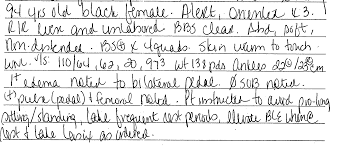 94 yrs old black female. Alert, oriented x 3.
R/R even and unlabored BBS clear. Abd, soft,
non-distended. BS⊕ x 4quads. Skin warm to touch
V/S: 110/64, 62, 20, 97.3 wt 138 pds Ankles
1+ edema noted to bilateral pedal. Ø SOB noted.
(+) pulse (pedal) + femoral noted. Pt instructed to avoid prolong
sitting/standing, take frequent rest periods, elevate BLE when @
rest & take Lasix as ordered.